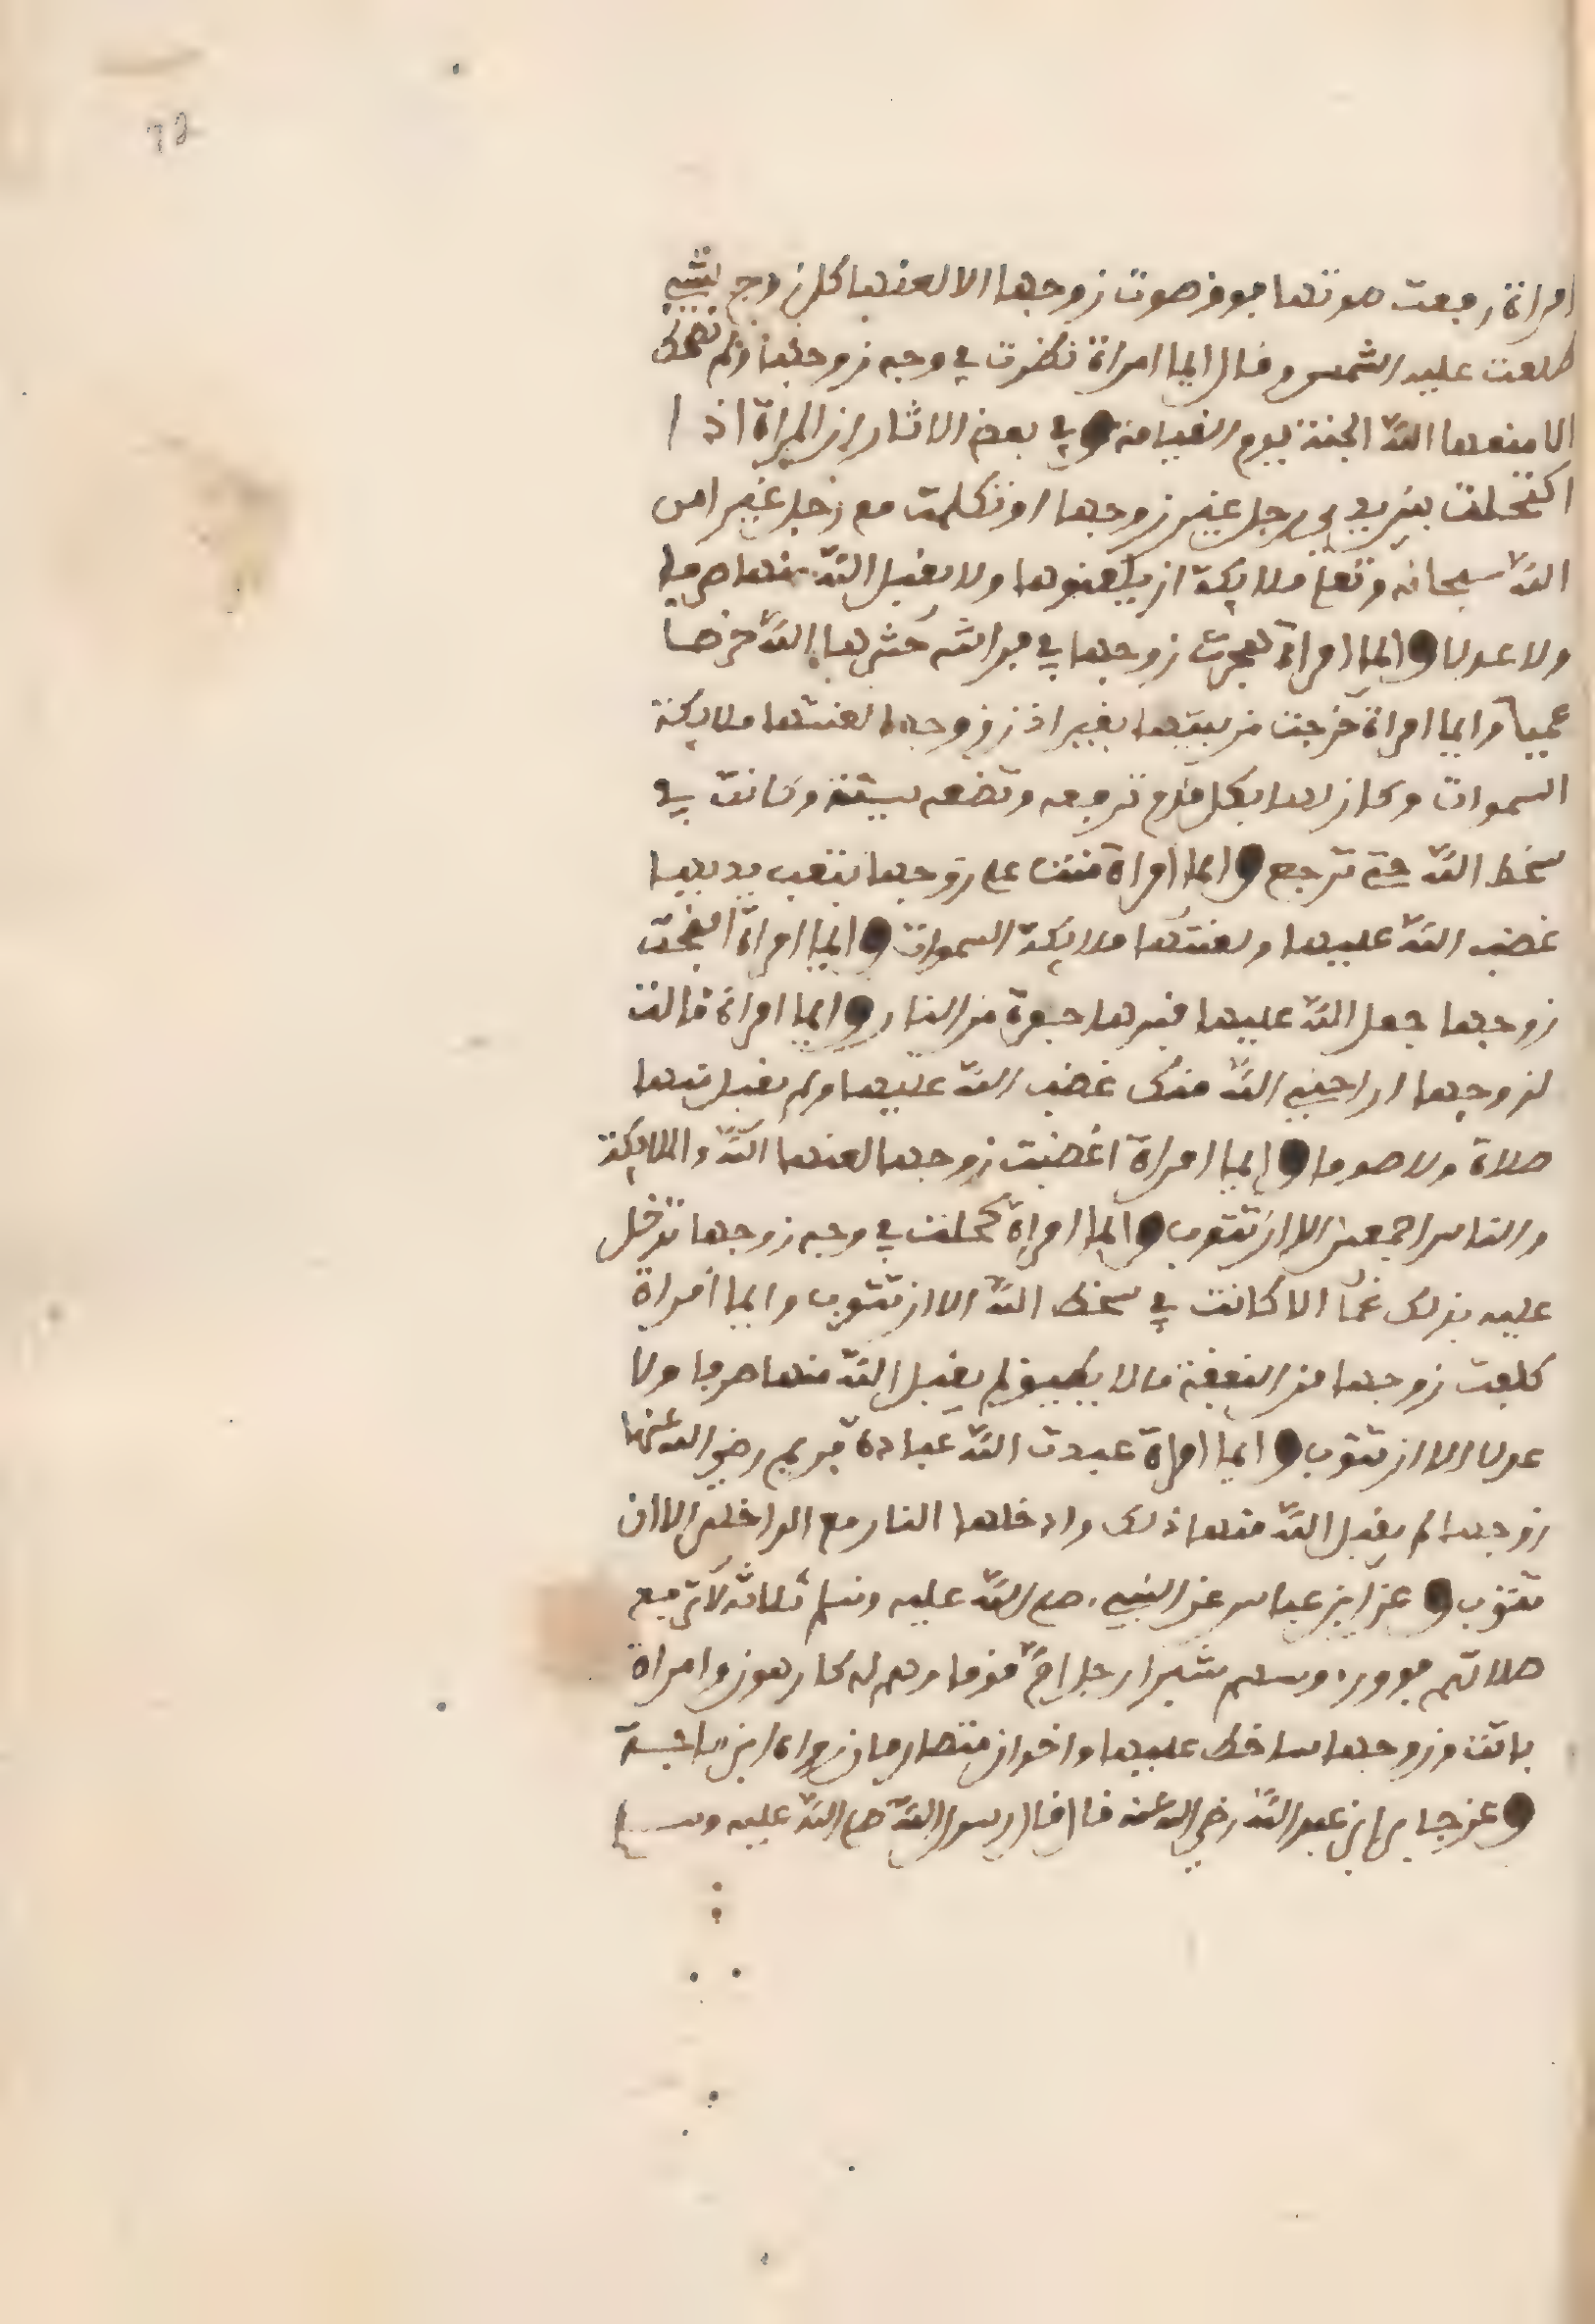 امراة رفعت صوتها فوق صوت زوجها الا لعنها كل زوج شيء
طلعت عليه الشمس وقال ايما امراة نظرت في وجه زوجها ولم تضحك
الا منعها الله الجنة يوم القيامة وفي بعض الاثار ان المراة اذا
اكتحلت بغير رجل غير زوجها او تكلمت مع رجل غيره امر
الله سبحانه وتعلى ملايكة ان يلعنوها ولا يقبل الله منها صرفا
ولا عدلا وايما امراة هجرت زوجها في فراشه حشرها الله خرصا
عميا وايما امراة خرجت من بيتها بغير اذن زوجها لعنتها ملايكة
السموات وكان لها بكل قدم ترفعه وتضعه سيئة وكانت في
سخط الله حتى ترجع وايما امراة منت على زوجها بتعب يديها
غضب الله عليها ولعنتها ملايكة السموات وايما امراة
زوجها جعل الله عليها قبرها حفرة من النار وايما امراة قالت
لزوجها اراحني الله منك غضب الله عليها ولم يقبل منها
صلاة ولا صوما وايما امراة اغضبت زوجها لعنها الله والملايكة
والناس اجمعين الا ان تتوب وايما امراة كحلت في وجه زوجها تدخل
عليه بذلك غما الا كانت في سخط الله الا ان تتوب وايما امراة
كلفت زوجها من النفقة ما لا يطيق لم يقبل الله منها صرفا ولا
عدلا الا ان تتوب وايما امراة عبدت الله عبادة مريم رضي الله عنها
زوجها لم يقبل الله منها ذلك وادخلها النار مع الداخلين الا ان
تتوب وعن ابن عباس عن النبي صلى الله عليه وسلم ثلاثة لا ترفع
صلاتهم فوق روسهم شبرا رجل ام قوما وهم له كارهون وامراة
باتت وزوجها ساخط عليها واخوان متصارمان رواه ابن ماجة
وعن جابر ابن عبد الله رضي الله عنه قال قال رسول الله صلى الله عليه وسلم